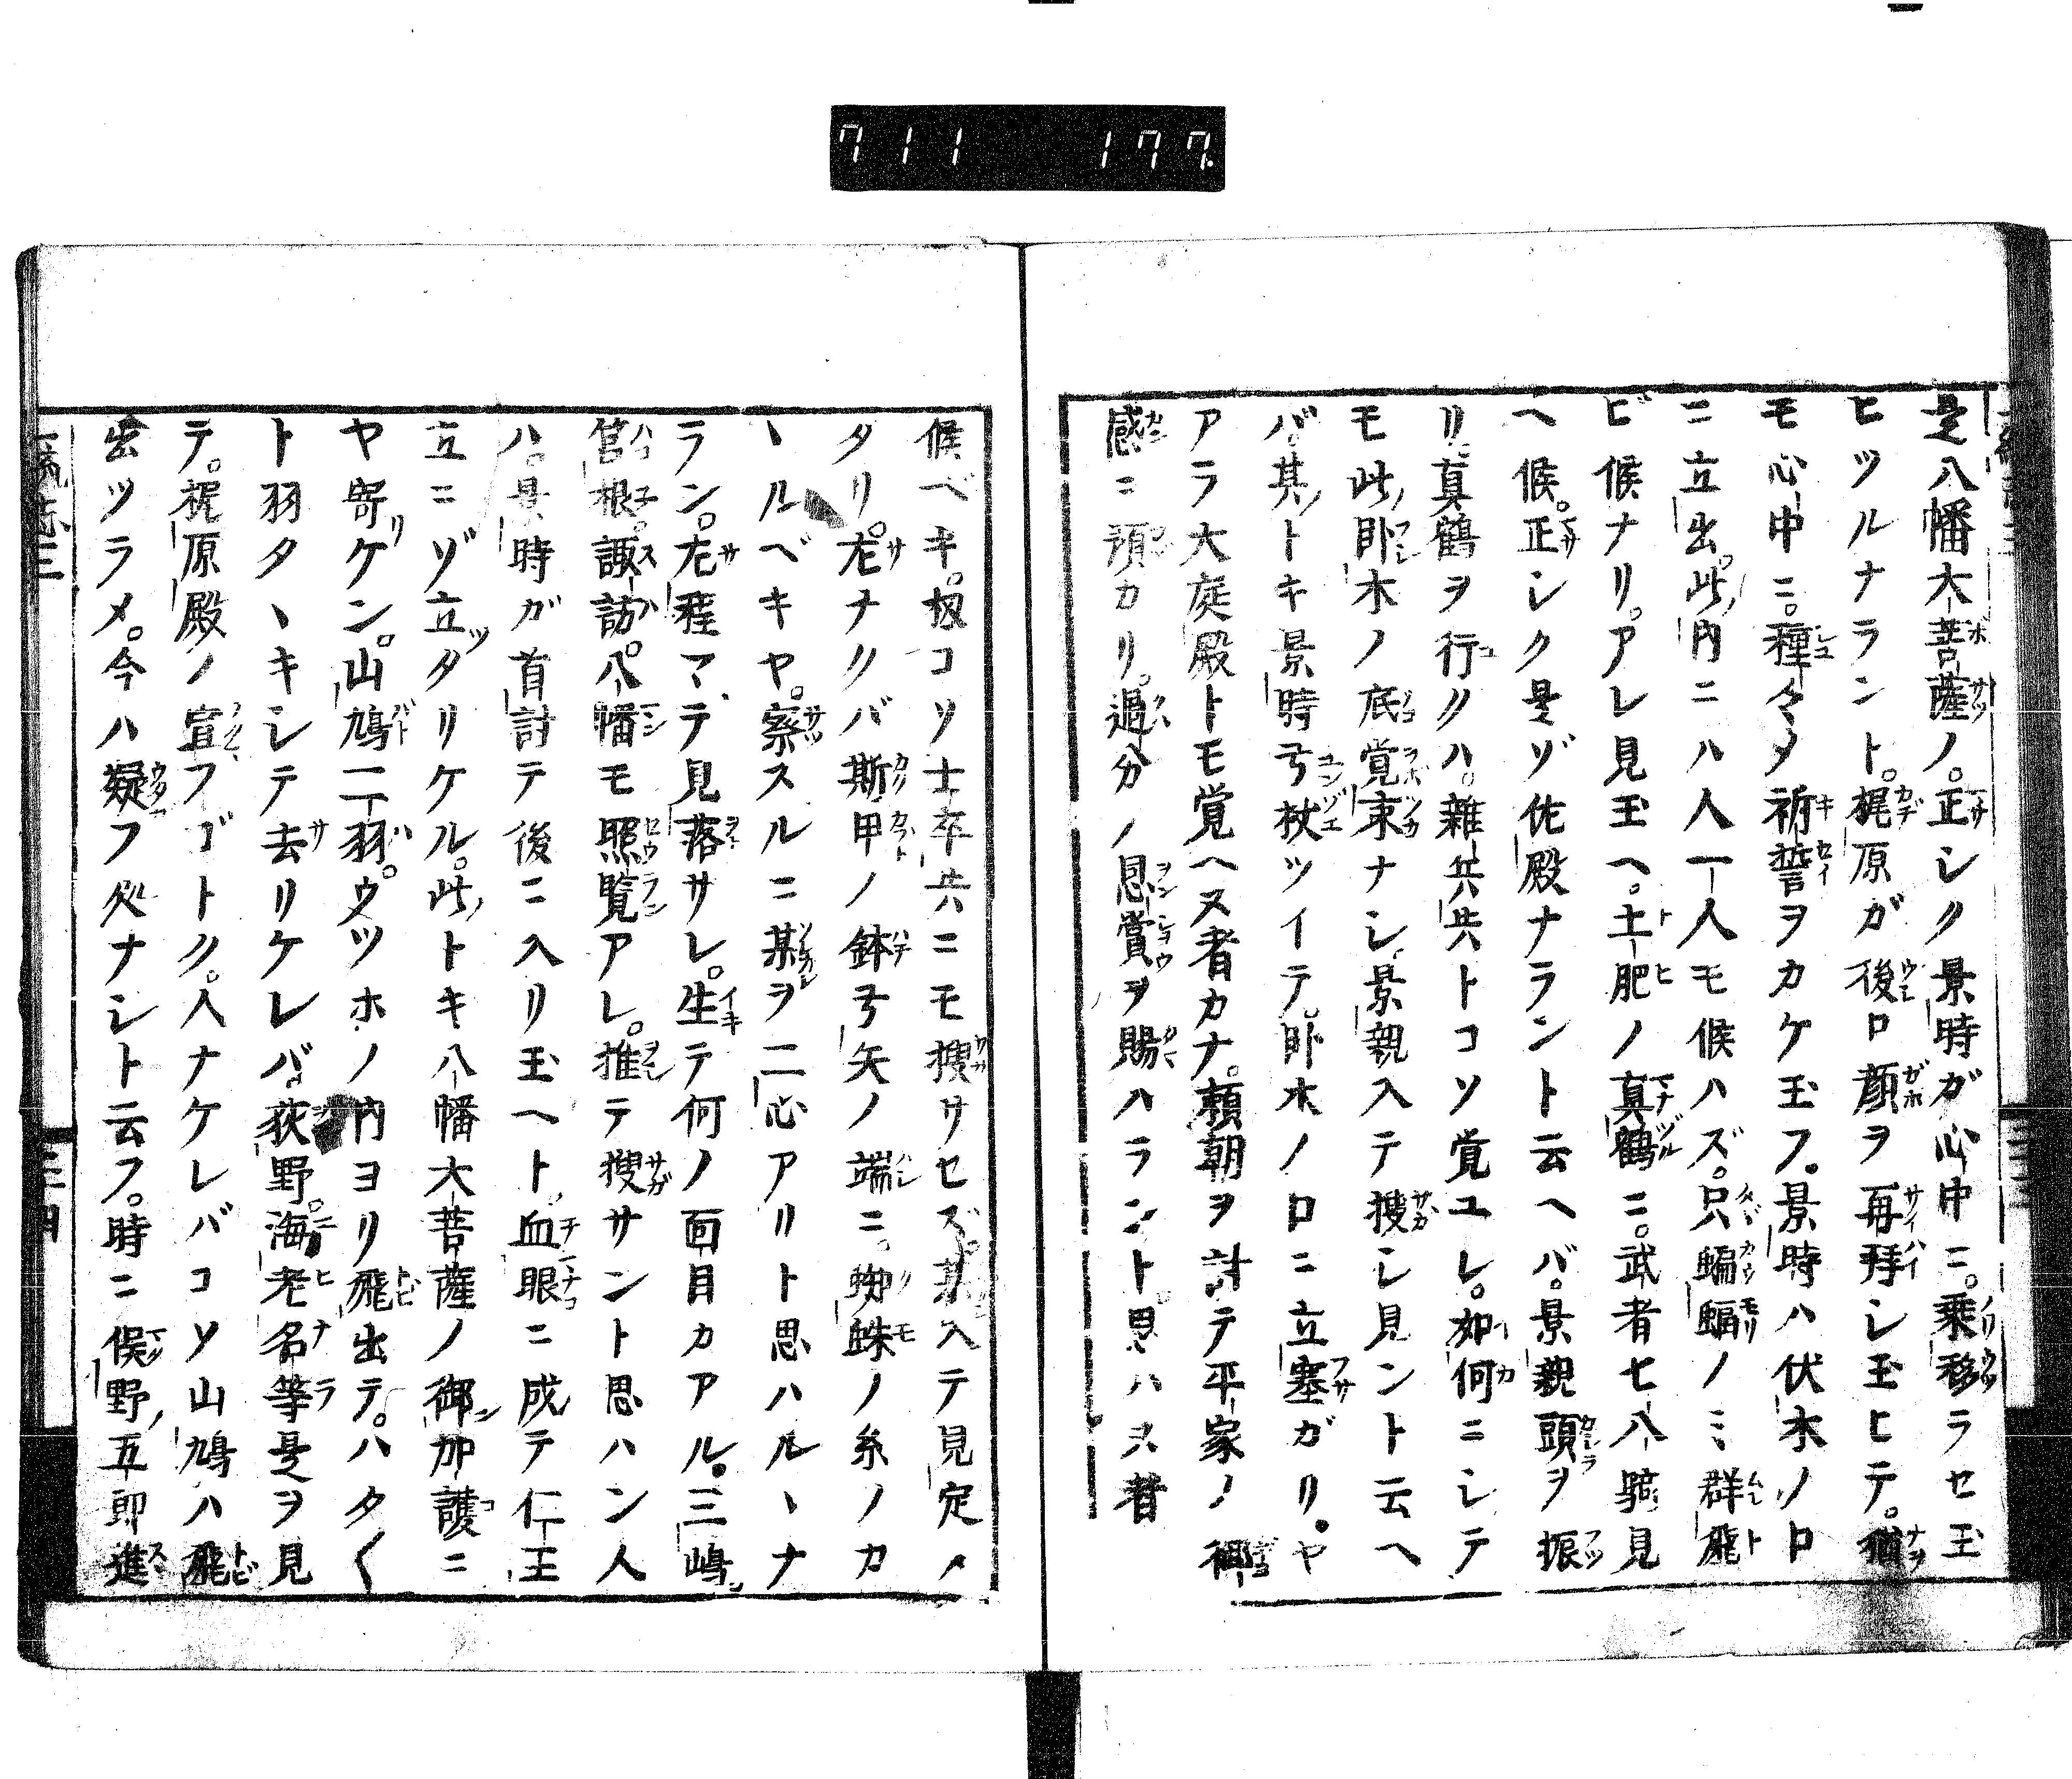 711 177
是八幡大菩薩ノ。正シク景時ガ心中ニ。乗移ラセ玉
ヒツルナラント。梶原ガ後ロ顔ヲ再拝シ玉ヒテ。猶
モ心中ニ。種々ノ祈誓ヲカケ玉フ。景時ハ伏木ノ口
ニ立出。此内ニハ人一人モ候ハズ。只蝙蝠ノミ群飛
ビ候ナリ。アレ見玉ヘ。土肥ノ真鶴ニ。武者七八騎見
ヘ候。正シク是ゾ佐殿ナラント云ヘバ。景親頭ヲ振
リ。真鶴ヲ行クハ。雑兵共トコソ覚ユレ。如何ニシテ
モ此卧木ノ底覚束ナシ。景親入テ捜シ見ント云ヘ
バ。其トキ景時弓杖ツイテ。卧木ノ口ニ立塞ガリ。ヤ
アラ大庭殿トモ覚ヘヌ者カナ。頼朝ヲ討テ平家ノ御
感ニ預カリ。過分ノ恩賞ヲ賜ハラント思ハヌ者
候ベキ。扨コソ士卒共ニモ捜サセズ。某入テ見定メ
タリ。左ナクバ斯甲ノ鉢弓矢ノ端ニ。蜘蛛ノ糸ノカ
ヽルベキヤ。察スルニ某ヲ二心アリト思ハルヽナ
ラン。左程マテ見落サレ。生テ何ノ面目カアル。三嶋
筥根。諏訪。八幡モ照覧アレ。推テ捜サント思ハン人
ハ。景時ガ首討テ後ニ入リ玉ヘト。血眼ニ成テ仁王
立ニゾ立タリケル。此トキ八幡大菩薩ノ御加護ニ
ヤ寄ケン。山鳩二羽。ウツホノ内ヨリ飛出テ。ハタ〱
ト羽タヽキシテ去リケレバ。荻野。海老名等是ヲ見
テ。梶原殿ノ宣フゴトク。人ナケレバコソ山鳩ハ飛
出ツラメ。今ハ疑フ処ナシト云フ。時ニ俣野五郎進
三四